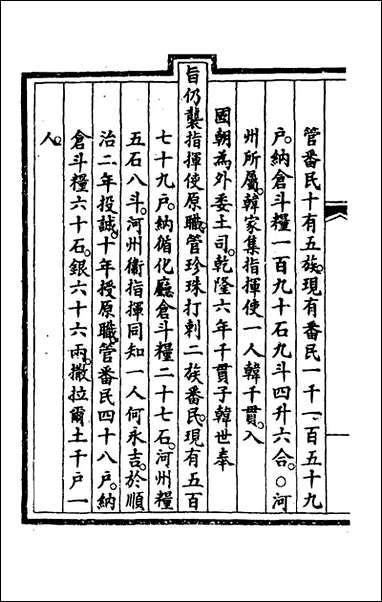 管番民十有五族。現有番民一千一百五十九
戶。納倉斗糧一百九十石九斗四升六合。○河
州所屬。韓家集指揮使一人韓千貫。入
國朝為外委土司。乾隆六年千貫子韓世奉
旨仍襲指揮使原職。管珍珠打剌二族番民。現有五百
七十九戶。納循化廳倉斗糧二十七石。河州糧
五石八斗。河州衛指揮同知一人何永吉。於順
治二年投誠。十年授原職。管番民四十八戶。納
倉斗糧六十石。銀六十六兩。撒拉爾土千戶一
人。